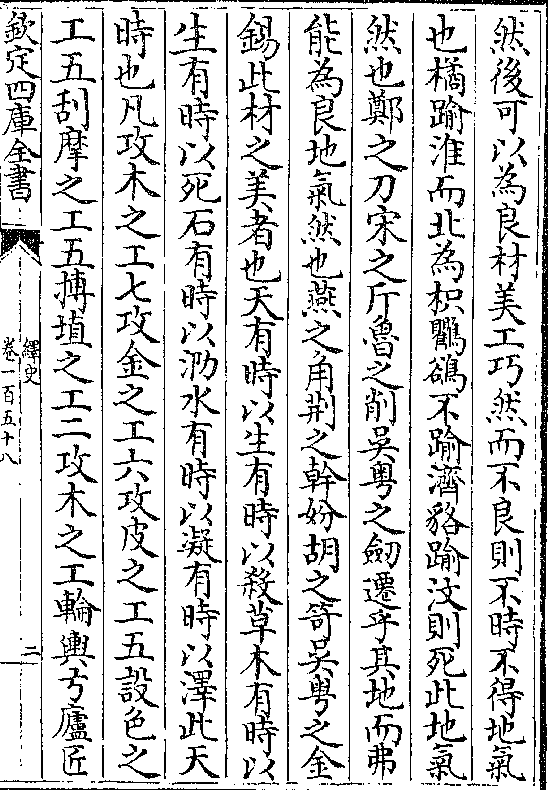 然後可以為良材美工巧然而不良則不時不得地氣
也橘踰淮而北為枳鸜鵒不踰濟貉踰汶則死此地氣
然也鄭之刀宋之斤魯之削吳粤之劒遷乎其地而弗
能為良地氣然也燕之角荆之幹妢胡之笴吳粤之金
錫此材之美者也天有時以生有時以殺草木有時以
生有時以死石有時以泐水有時以凝有時以澤此天
時也凡攻木之工七攻金之工六攻皮之工五設色之
工五刮摩之工五搏埴之工二攻木之工輪輿弓廬匠
欽定四庫全書
繹史
卷一百五十八
二